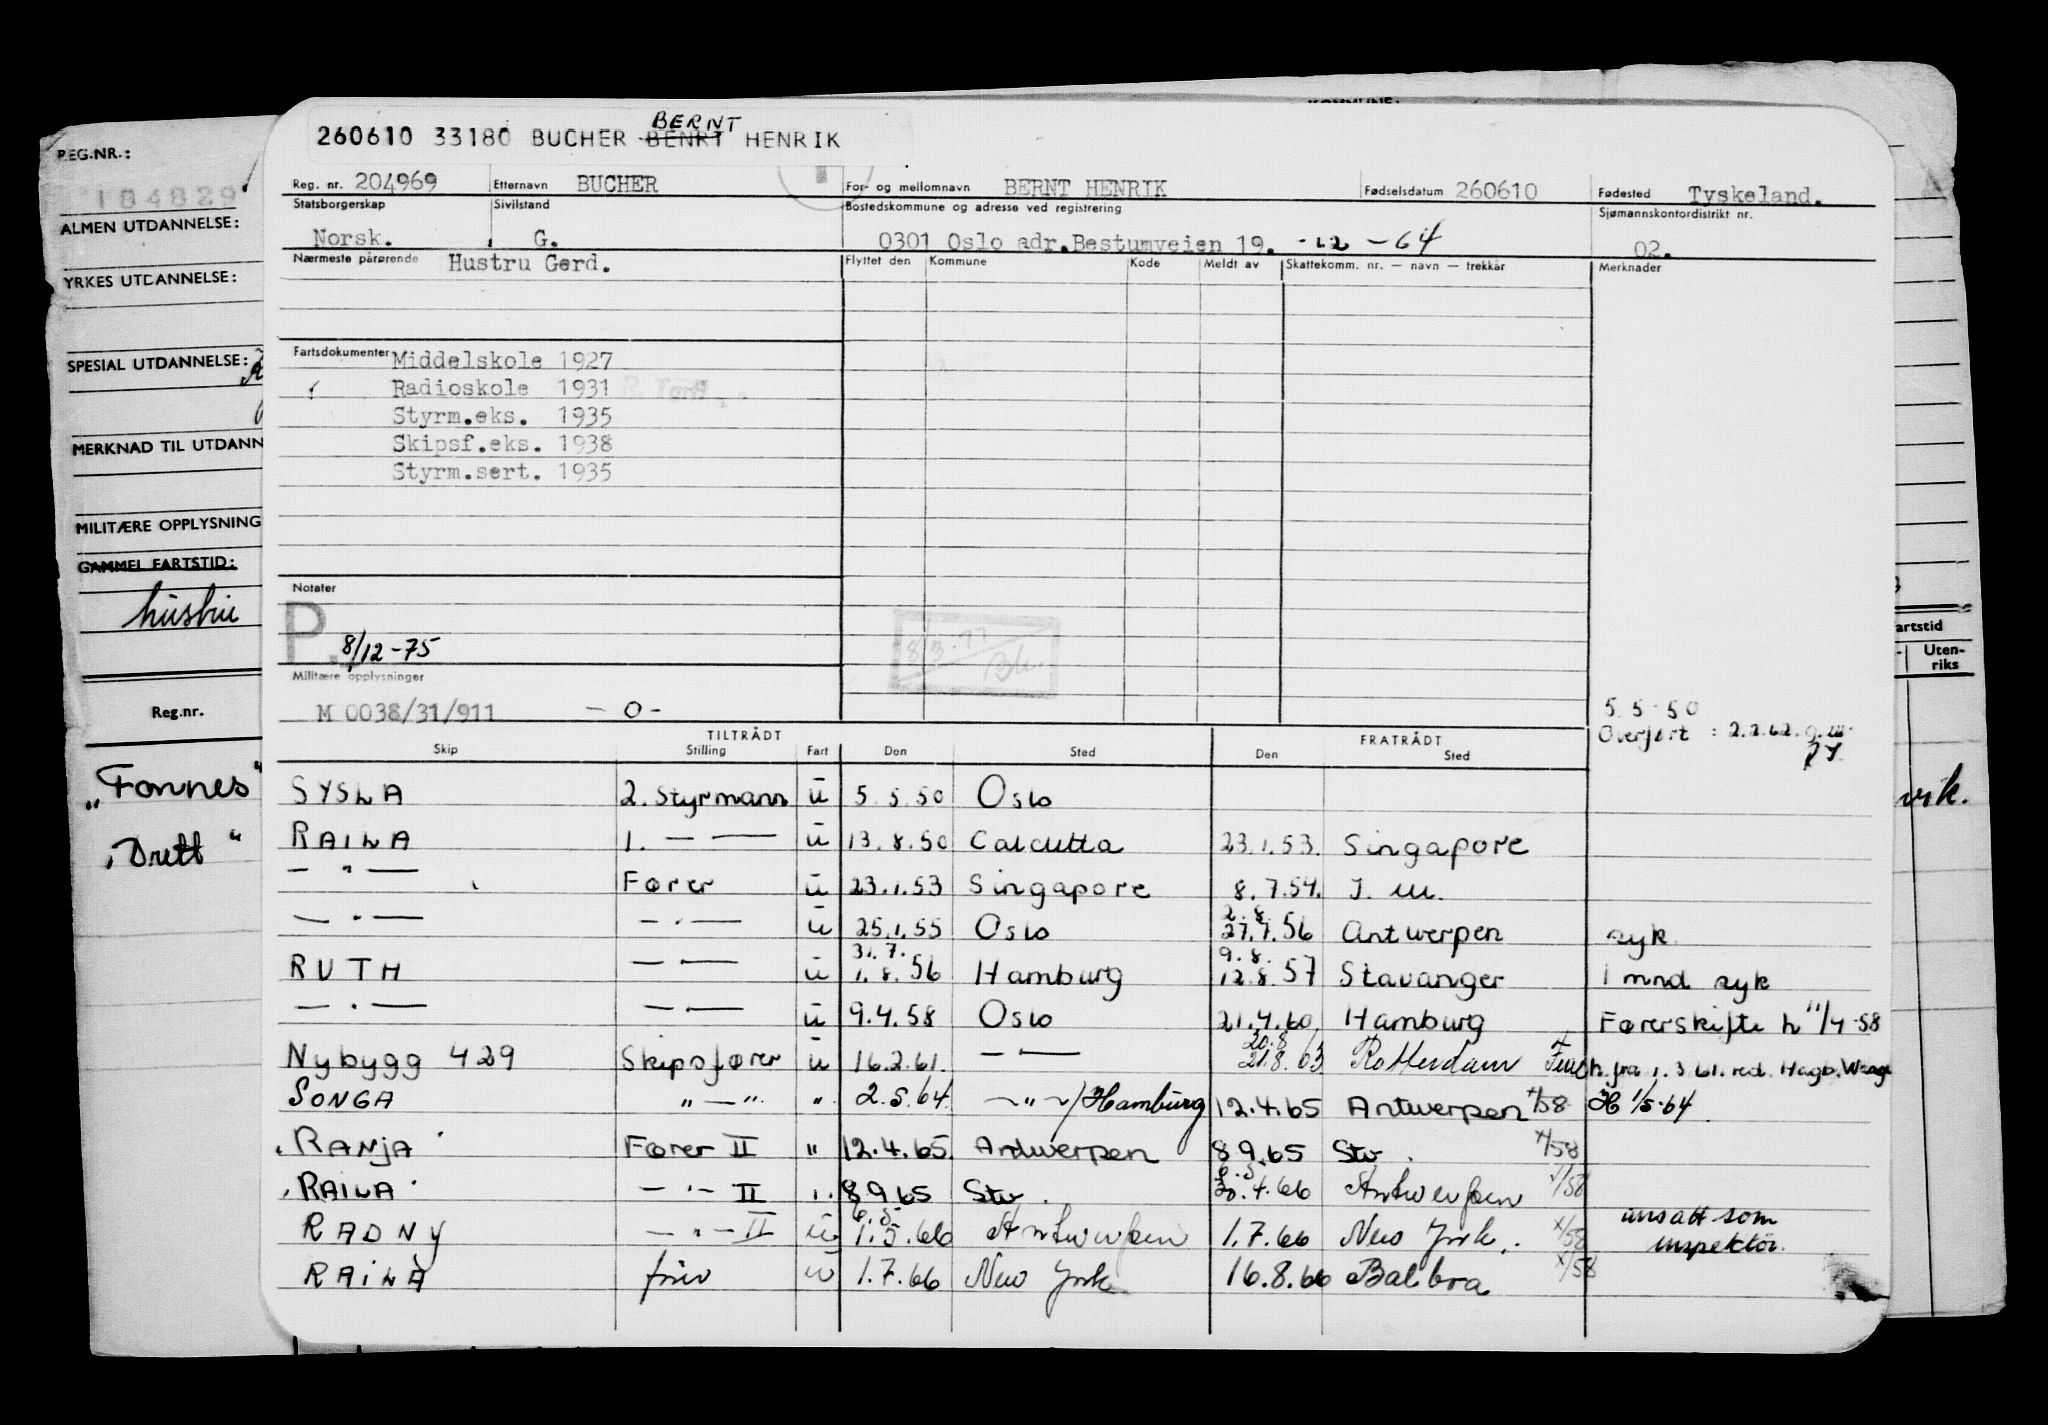 KOMMUNE:
REG.NR.:
184829
ALMEN UTDANNELSE:
YRKES UTDANNELSE:
SPESIAL UTDANNELSE:
MERKNAD TIL UTDANN
MILITÆRE OPPLYSNING
GAMMEL FARTSTID:
hustru
Reg.nr.
"Fonnes"
"Drett"
artstid
Uten-
riks
vik.
BERNT
260610 33180 BUCHER BENRT HENRIK
Reg. nr. 204969 Etternavn BUCHER For- og mellomnavn BERNT HENRIK Fødselsdatum 260610 Fødested Tyskeland.
Statsborgerskap Sivilstand Bostedskommune og adresse ved registrering Sjømannskontordistrikt nr.
Norsk. G. 0301 Oslo adr.Bestumveien 19. -12-64 02.
Nærmeste pårørende Hustru Gerd. Flyttet den Kommune Kode Meldt av Skattekomm. nr. — navn — trekkår Merknader
Fartsdokumenter Middelskole 1927
Radioskole 1931
Styrm.eks. 1935
Skipsf.eks. 1938
Styrm.sert. 1935
Notater
P. 8/12-75
8/3.77
Militære opplysninger
M 0038/31/911 -0-
5.5.50
Overført : 2.2.62.
TILTRÅDT FRATRÅDT
Skip Stilling Fart Den Sted Den Sted
SYSLA 2. Styrmann ü 5.5.50 Oslo
RAILA 1. — — ü 13.8.50 Calcutta 23.1.53. Singapore
— " — Fører ü 23.1.53 Singapore 8.7.54. I. M.
— " — — " — ü 25.1.55 Oslo 2.8. 27.7.56 Antwerpen syk
RUTH — " — ü 31.7. 1.8.56 Hamburg 9.8. 12.8.57 Stavanger 1 mnd syk
— " — — " — ü 9.4.58 Oslo 21.4.60 Hamburg Førerskifte h 11/4-58
Nybygg 429 Skipsfører ü 16.2.61. — " — 20.8 21.8.63 Rotterdam h. fra 1.3.61. red. Hagb. Waage
SONGA " — " " 2.5.64 — " —/Hamburg 12.4.65 Antwerpen x/58 H 1/5-64.
"RANJA" Fører II " 12.4.65 Antwerpen 8 9.65 Stv. x/58
"RAILA" — " — II " 8 9 65 Stv. 6.5. 30.4.66 Antwerpen x/58
RADNY — " — II ü 6.5 1.5.66 Antwerpen 1.7.66 New York. x/58 ansatt som
inspektør.
RAILA fører ü 1.7.66 New York 16.8.66 Balboa x/58